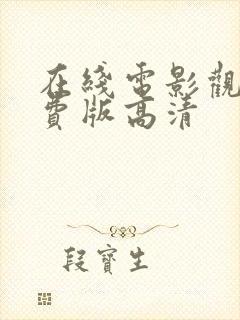 在綫電影觀
費版高清
段寶生